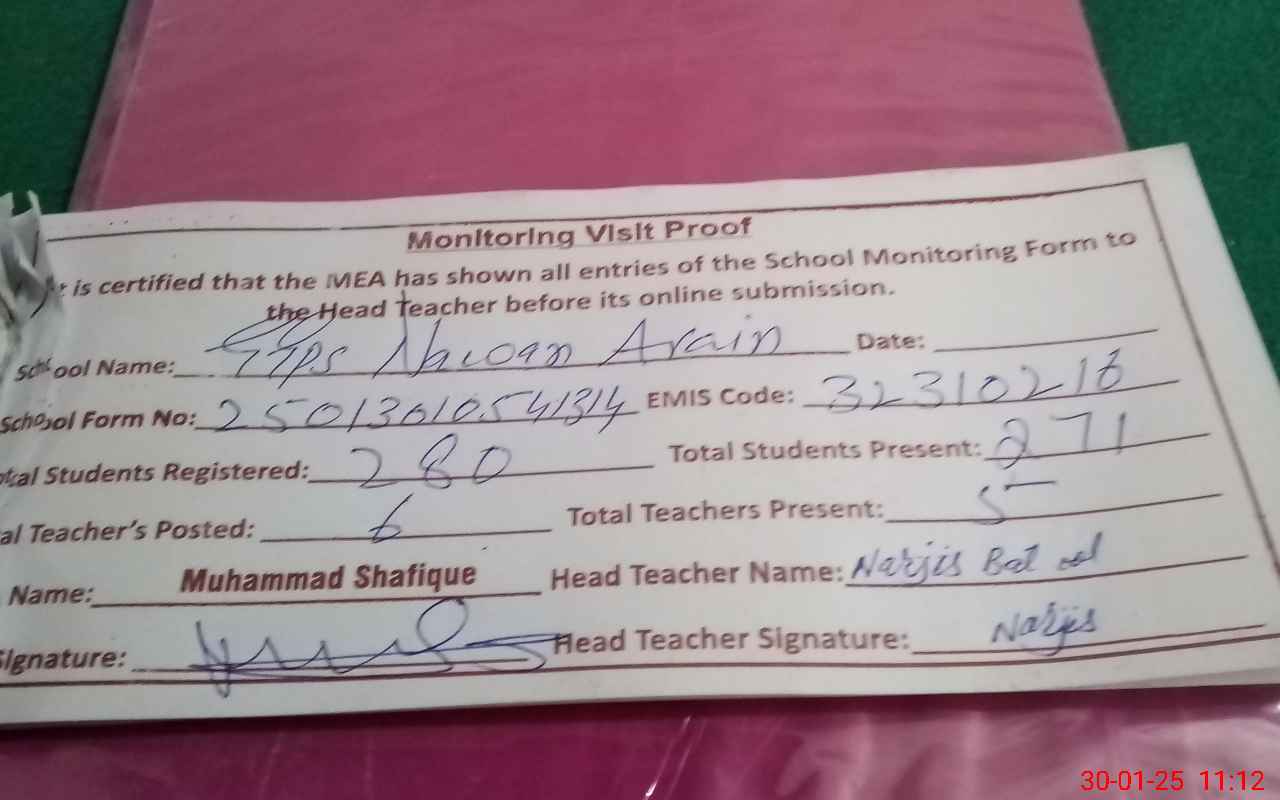 Monitoring Visit Proof
t is certified that the MEA has shown all entries of the School Monitoring Form to
the Head Teacher before its online submission.
School Name: GGPS Nawan Arain Date:
School Form No: 25013010541314 EMIS Code: 32310216
tal Students Registered: 280 Total Students Present: 271
al Teacher's Posted: 6 Total Teachers Present: 5
Name: Muhammad Shafique Head Teacher Name: Narjis Batool
Signature: Head Teacher Signature: Narjis
30-01-25 11:12